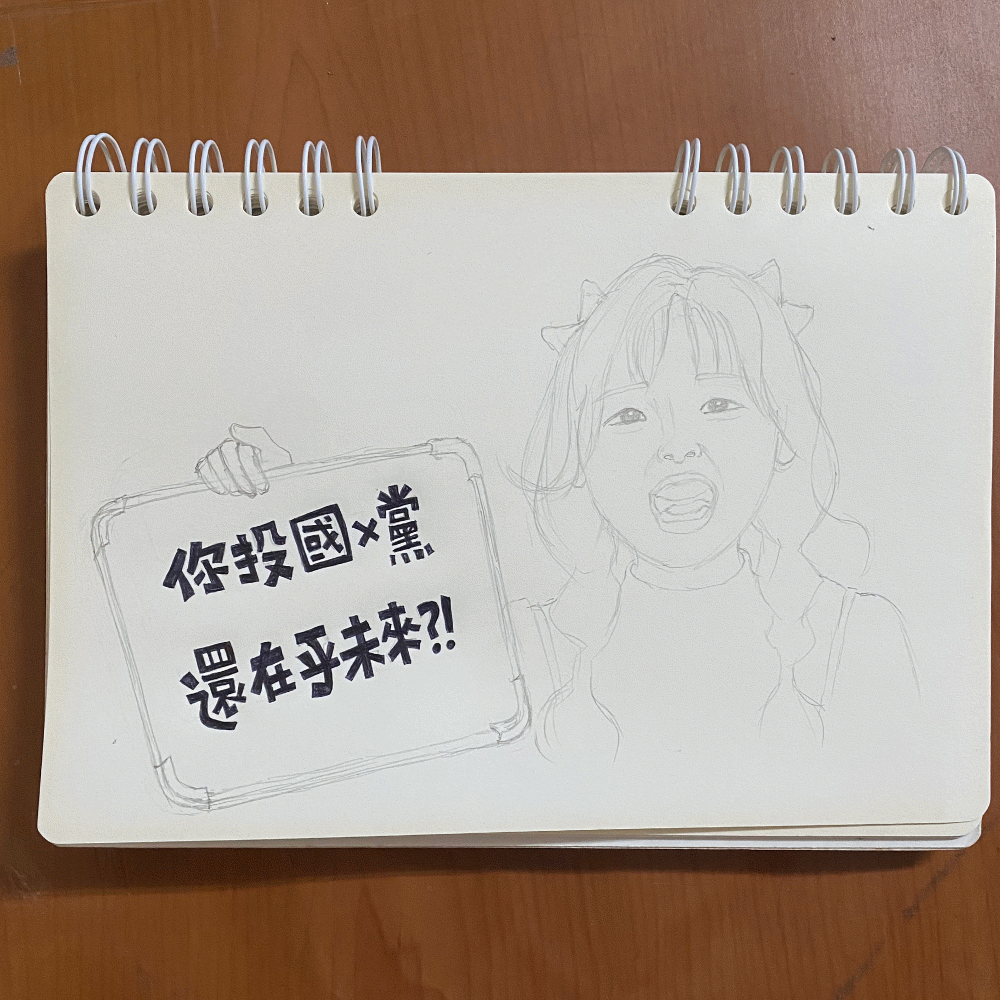 你投國×黨
還在乎未來?!